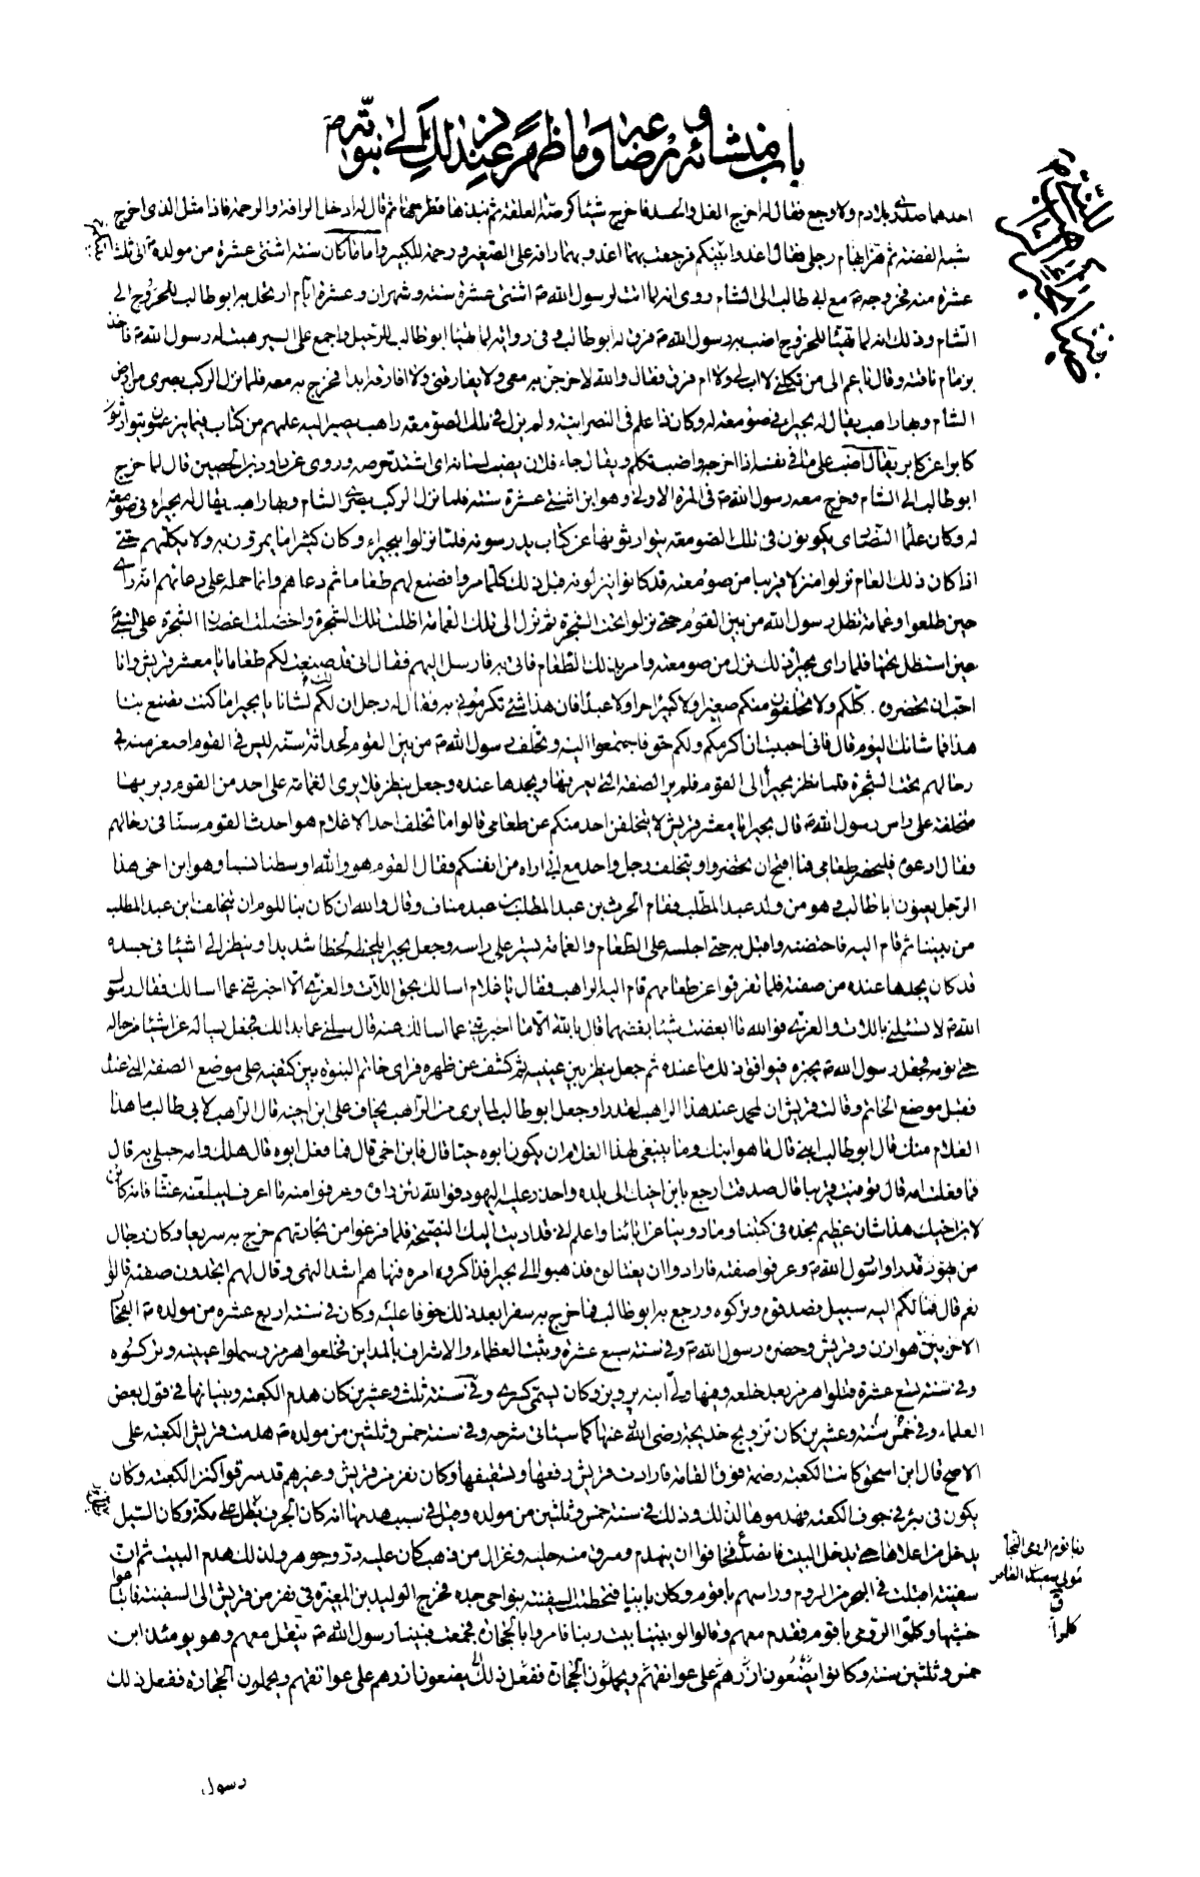 باب منشائه ورضاعه وما ظهر عند ذلك الى نبوته ص
احدهما صدرى بلا دم ولا وجع فقال له اخرج الغل والحسد فاخرج شيئا كرصة العلقة ثم نبذها فطرحها ثم قال له ادخل الرافة والرحمة فاذا مثل الذى اخرج
شبه الفضة ثم هز ابهام رجلى فقال اغدوا بينكم فرجعت بهما اغدو بهما رافة على الصغير ورحمة للكبير واما ما كان سنة اثنتى عشرة من مولده م الى ثلث
عشرة منه فخروجه م مع ابى طالب الى الشام روى انه لما اتت لرسول الله م اثنتى عشرة سنة وشهران وعشرة ايام ارتحل به ابو طالب للخروج الى
الشام وذلك انه لما تهيئا للخروج اضب به رسول الله م فرق له ابو طالب وفى رواية لما تهيئا ابو طالب للرحيل واجمع على السير هب له رسول الله م فاخذ
بزمام ناقته وقال يا عم الى من تكلنى لا اب لى ولا ام فرق فقال والله لاخرجن به معى ولا يفارقنى ولا افارقه ابدا فخرج به معه فلما نزل الركب بصرى من ارض
الشام وبها راهب يقال له بحيرا فى صومعة له وكان ذا علم فى النصرانية ولم يزل فى تلك الصومعة راهب يصير اليه علمهم من كتاب فيما يزعمون يتوارثونه
كابرا عن كابر يقال اضب على ما فى نفسه اذا اخرجه واضب تكلم ويقال جاء فلان يضب لسانه اى اشتد حرصه وروى عن داود بن الحصين قال لما خرج
ابو طالب الى الشام وخرج معه رسول الله م فى المرة الاولى وهو ابن اثنتى عشرة سنة فلما نزل الركب بصرى الشام وبها راهب يقال له بحيرا فى صومعة
له وكان علماء النصارى يكونون فى تلك الصومعة يتوارثونها عن كتاب يدرسونه فلما نزلوا ببحيراء وكان كثيرا ما يمرون به ولا يكلمهم حتى
اذا كان ذلك العام نزلوا منزلا قريبا من صومعته قد كانوا ينزلونه قبل ذلك كلما مروا فصنع لهم طعاما ثم دعاهم وانما حمله على دعائهم انه راى
حين طلعوا وغمامة تظل رسول الله من بين القوم حتى نزلوا تحت الشجرة ثم نزل الى تلك الغمامة اظلت تلك الشجرة واخضلت اغصان الشجرة على النبى م
حين استظل تحتها فلما راى بحيرا ذلك نزل من صومعته وامر بذلك الطعام فاتى به فارسل اليهم فقال انى قد صنعت لكم طعاما يا معشر قريش وانا
احب ان تحضروه كلكم ولا تخلفون منكم صغيرا ولا كبيرا حرا ولا عبدا فان هذا شئ تكرمونى به فقال له رجل ان لك لشانا يا بحيرا ما كنت تصنع بنا
هذا فما شانك اليوم قال فانى احببت ان اكرمكم ولكم حق فاجتمعوا اليه وتخلف رسول الله م من بين القوم لحداثة سنه ليس فى القوم اصغر منه فى
رحالهم تحت الشجرة فلما نظر بحيرا الى القوم فلم ير الصفة التى يعرفها ويجدها عنده وجعل ينظر فلا يرى الغمامة على احد من القوم ويريها
متخلفة على راس رسول الله م قال بحيرا يا معشر قريش لا يتخلفن احد منكم عن طعامى قالوا ما تخلف احد الا غلام هو احدث القوم سنا فى رحالهم
فقال ادعوه فليحضر طعامى فما اقبح ان تحضروا ويتخلف رجل واحد مع انى اراه من انفسكم فقال القوم هو والله اوسطنا نسبا وهو ابن اخى هذا
الرجل يعنون ابا طالب وهو من ولد عبد المطلب فقام الحرث بن عبد المطلب بن عبد مناف وقال والله ان كان بنا للوم ان يتخلف ابن عبد المطلب
من بيننا ثم قام اليه فاحتضنه واقبل به حتى اجلسه على الطعام والغمامة تسير على راسه وجعل بحيرا يلحظه لحظا شديدا وينظر الى اشيا فى جسده
قد كان يجدها عنده من صفته فلما تفرقوا عن طعامهم قام اليه الراهب فقال يا غلام اسالك بحق اللات والعزى الا اخبرتنى عما اسالك فقال رسول
الله م لا تسئلنى باللات والعزى فو الله ما ابغضت شيئا بغضهما قال بالله الا ما اخبرتنى عما اسالك عنه قال سلنى عما بدا لك فجعل يساله عن اشيا من حاله
حتى نومه فجعل رسول الله م يخبره فيوافق ذلك ما عنده ثم جعل ينظر بين عينيه ثم كشف عن ظهره فراى خاتم النبوة بين كتفيه على موضع الصفة التى عنده
فقبل موضع الخاتم وقالت قريش ان لمحمد عند هذا الراهب لقدرا وجعل ابو طالب لما يرى من الراهب يخاف على ابن اخيه قال الراهب لابى طالب ما هذا
الغلام منك قال ابو طالب ابنى قال ما هو ابنك وما ينبغى لهذا الغلام ان يكون ابوه حيا قال فابن اخى قال فما فعل ابوه قال هلك وامه حبلى به قال
فما فعلت امه قال توفيت قريبا قال صدقت ارجع بابن اخيك الى بلده واحذر عليه اليهود فو الله لئن راوه وعرفوا منه ما اعرف ليبلغنه عنتا فانه كائن
لابن اخيك هذا شان عظيم نجده فى كتبنا وما روينا عن ابائنا واعلم انى قد اديت اليك النصيحة فلما فرغوا من تجارتهم خرج به سريعا وكان رجال
من يهود قد راوا رسول الله م وعرفوا صفته فارادوا ان يغتالوه فذهبوا الى بحيرا فذاكروه امره فنهاهم اشد النهى وقال لهم اتجدون صفته قالوا
نعم قال فما لكم اليه سبيل فصدقوه وتركوه ورجع به ابو طالب فما خرج به سفرا بعد ذلك خوفا عليه وكان فى سنة اربع عشرة من مولده م الفجار
الاخر بين هوازن وقريش وحضره رسول الله م وفى سنة سبع عشرة وثبت العظماء والاشراف بالمداين فخلعوا هرمز وسملوا عينيه وتركوه
وفى سنة تسع عشرة قتلوا هرمز بعد خلعه وفيها ولى ابنه برويز وكان ليسمى كسرى وفى سنة ثلث وعشرين كان هدم الكعبة وبنيانها فى قول بعض
العلماء وفى خمس سنة وعشرين كان تزويج خديجة رضى الله عنها كما سيئاتى شرحه وفى سنة خمس وثلثين من مولده م هدمت قريش الكعبة على
الاصح قال ابن اسحق كانت الكعبة رضمة فوق القامة فارادت قريش رفعها وتسقيفها وكان نفر من قريش وغيرهم قد سرقوا كنز الكعبة وكان
يكون فى بئر فى جوف الكعبة فهدموها لذلك وذلك فى سنة خمس وثلثين من مولده وقيل فى سبب هدمها انه كان الجرف يظل على مكة وكان السيل
يدخل من اعلاها حتى يدخل البيت فانصدع فخافوا ان ينهدم وسرق منه حلية وغزال من ذهب كان عليه در وجوهر ولذلك هدم البيت ثم ان
سفينة اقبلت فى البحر من الروم وراسهم باقوم وكان بانيا فتحطت السفينة بنواحى جده فخرج الوليد بن المغيرة فى نفر من قريش الى السفينة فابتاعوا
خشبها وكلموا الرومى باقوم فقدم معهم وقالوا لو بنينا بيت ربنا فامروا بالحجارة فجمعت فبينا رسول الله م ينقل معهم وهو يومئذ ابن
خمس وثلثين سنة وكانوا يضعون ازرهم على عواتقهم ويحملون الحجارة ففعل ذلك يضعون ازرهم على عواتقهم ويحملون الحجارة ففعل ذلك
رسول